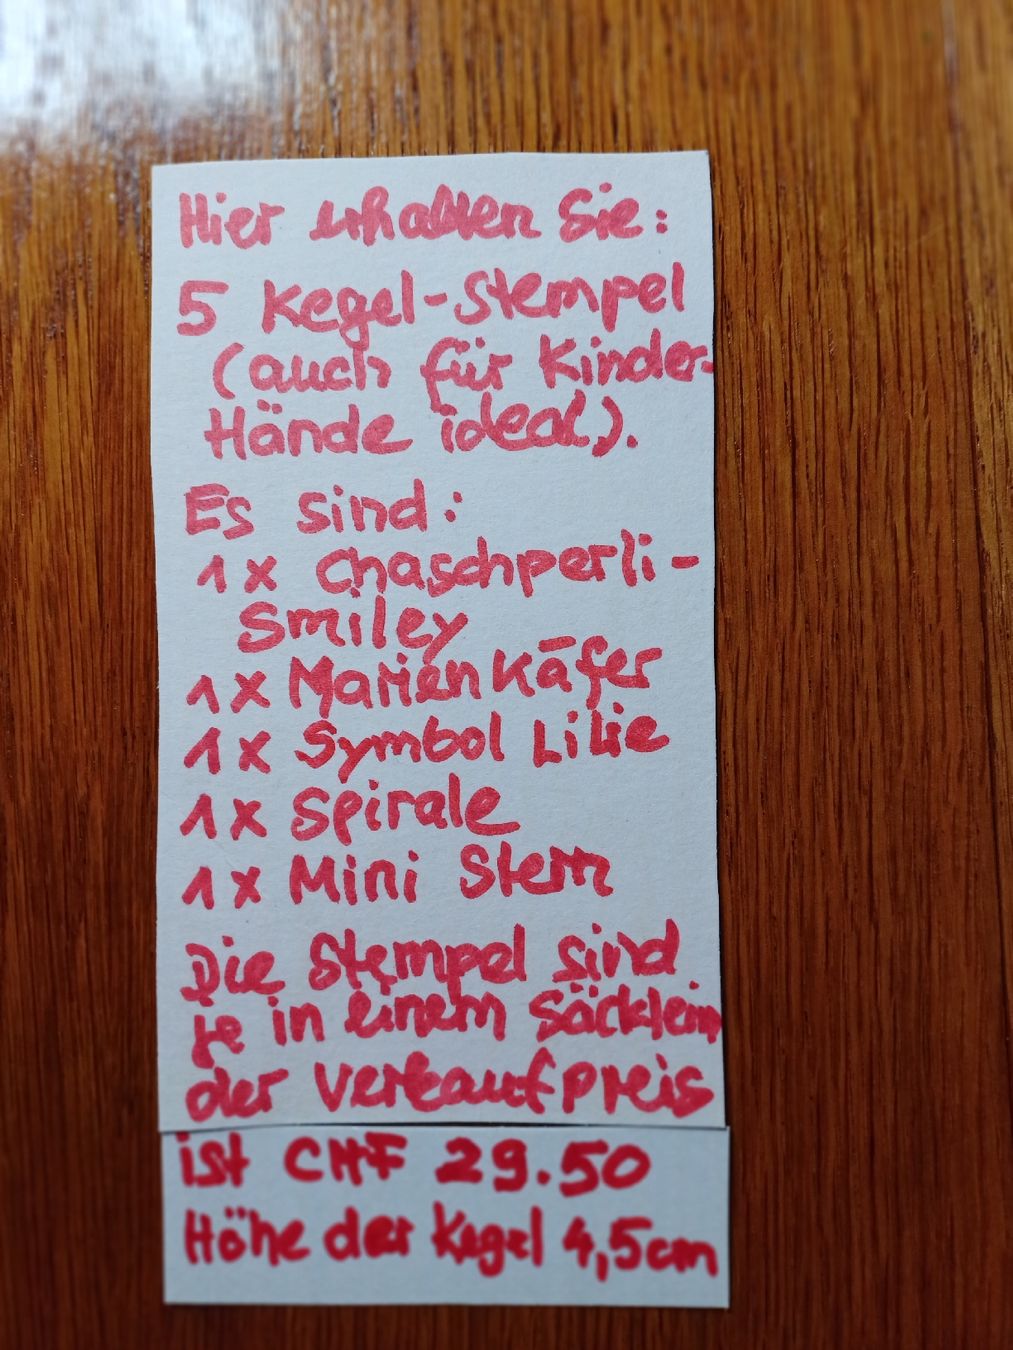 Hier erhalten Sie:
5 Kegel-Stempel
(auch für Kinder-
Hände ideal).
Es sind:
1x Chaschperli-
Smiley
1x Marienkäfer
1x Symbol Lilie
1x Spirale
1x Mini Stern
Die Stempel sind
je in einem Säcklein
der Verkaufpreis
ist CHF 29.50
Höhe der Kegel 4,5cm